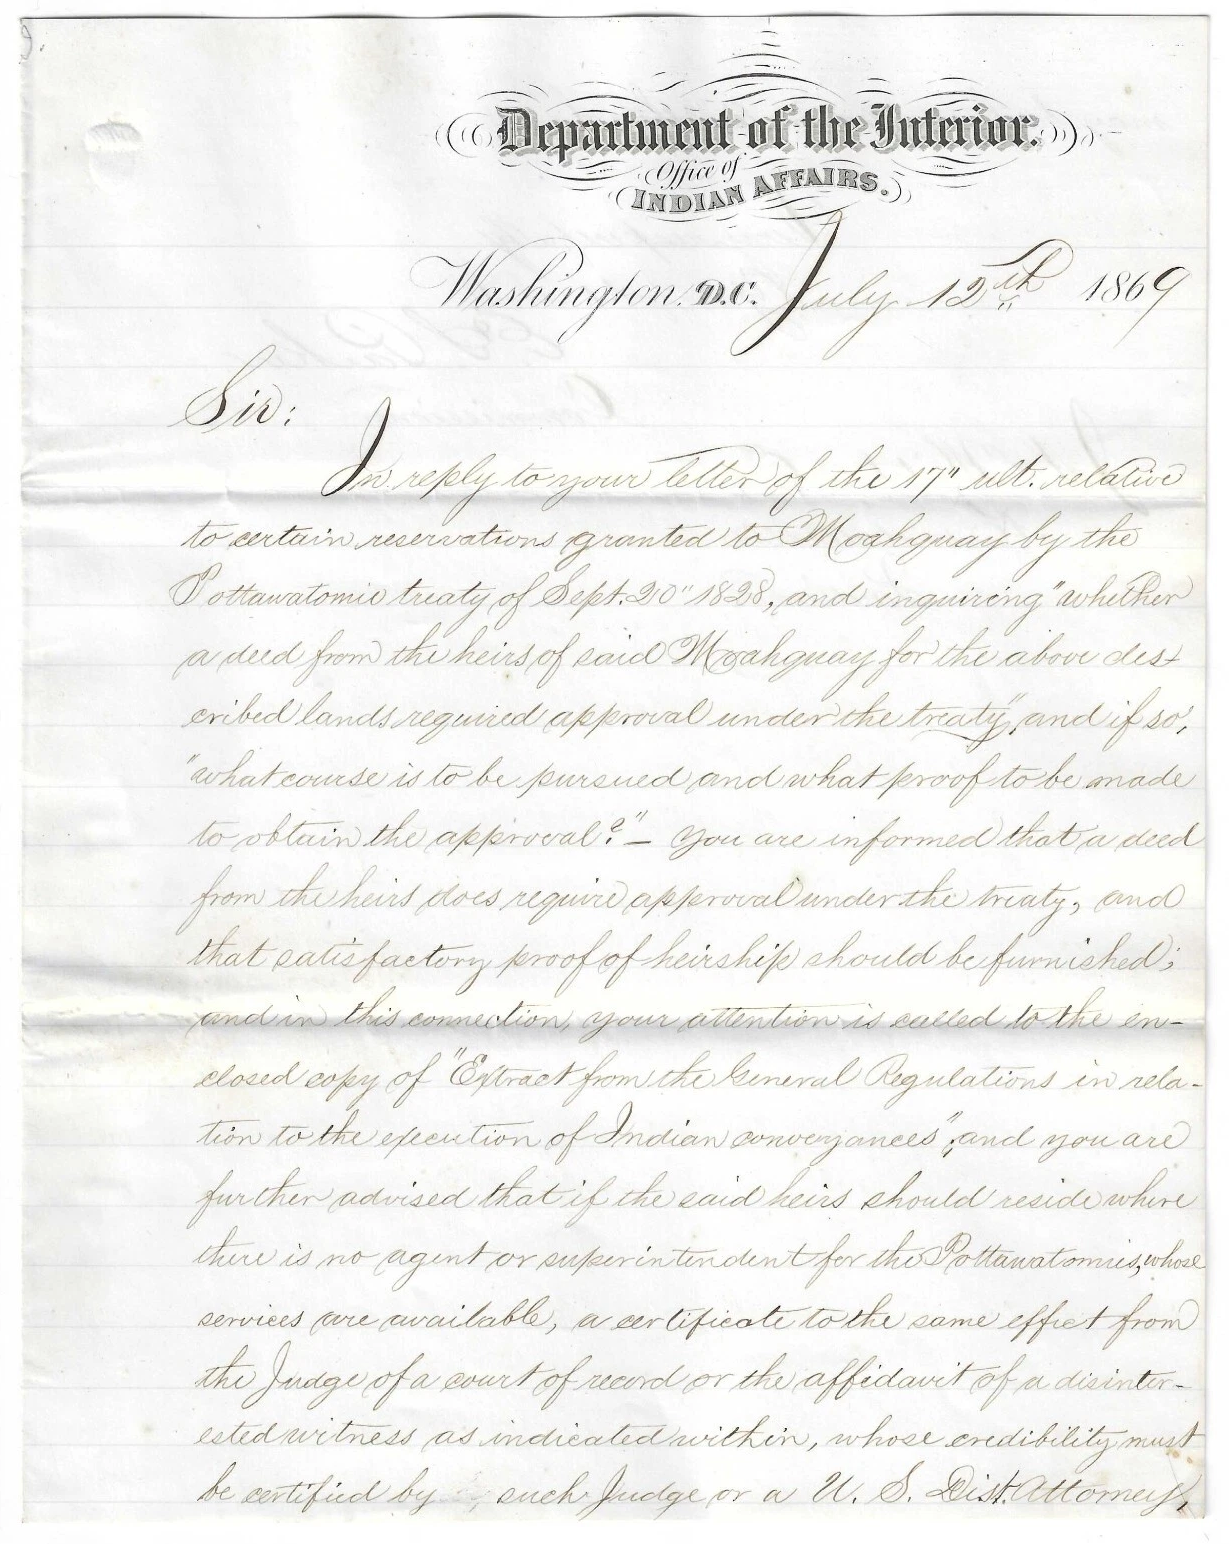 Department of the Interior.
Office of
INDIAN AFFAIRS.
Washington. D.C. July 12th 1869
Sir:
In reply to your letter of the 17" ult. relative
to certain reservations granted to Moahquay by the
Pottawatomie treaty of Sept. 20" 1828, and inquiring "whether
a deed from the heirs of said Moahquay for the above des-
cribed lands required approval under the treaty", and if so,
"what course is to be pursued and what proof to be made
to obtain the approval?" — you are informed that a deed
from the heirs does require approval under the treaty, and
that satisfactory proof of heirship should be furnished;
and in this connection, your attention is called to the en-
closed copy of "Extract from the General Regulations in rela-
tion to the execution of Indian conveyances"; and you are
further advised that if the said heirs should reside where
there is no agent or superintendent for the Pottawatomies, whose
services are available, a certificate to the same effect from
the Judge of a court of record or the affidavit of a disinter-
ested witness as indicated within, whose credibility must
be certified by such Judge or a U. S. Dist. Attorney,